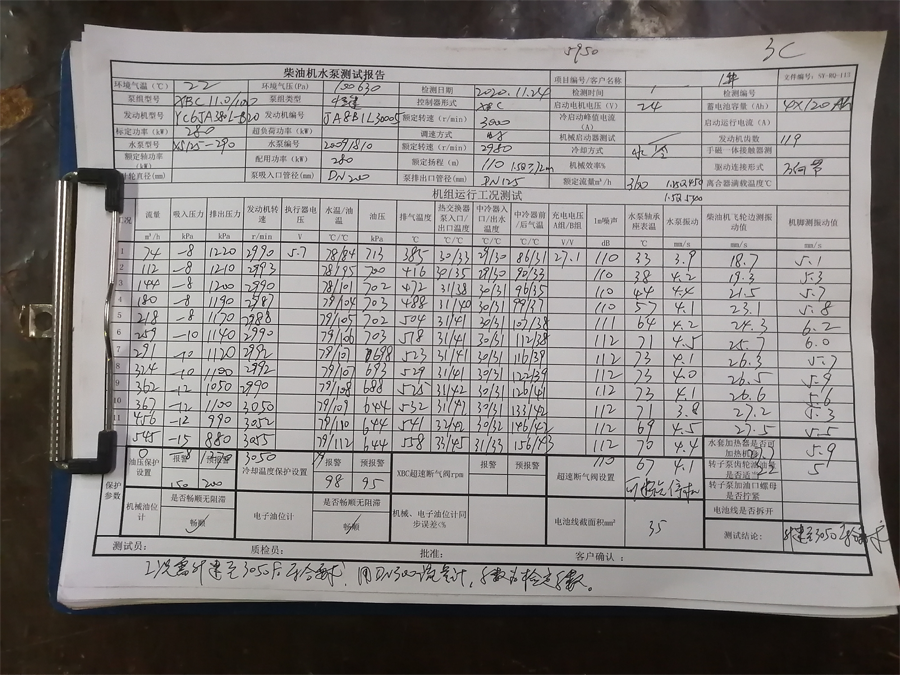 5950 3C
柴油机水泵测试报告 项目编号/客户名称 文件编号: SY-RQ-113
环境气温(℃) 22 环境气压(Pa) 100630 检测日期 2020.11.24 检测时间 检测编号
泵组型号 XBC 11.0/100 泵组类型 控制器形式 XBC 启动电机电压(V) 24 蓄电池容量(Ah) 4X120
发动机型号 YC6JA380L-B20 发动机编号 JA8B1L30005 额定转速(r/min) 3000 冷启动峰值电流(A) 启动运行电流(A)
标定功率(kW) 280 超负荷功率(kW) 调速方式 机械启动器测试 发动机齿数 119
水泵型号 XS125-290 水泵编号 20091810 额定转速(r/min) 2980 冷却方式 水冷 手磁一体接触器测
额定轴功率(kW) 配用功率(kW) 280 额定扬程(m) 110 机械效率% 驱动连接形式 万向节
叶轮直径(mm) 泵吸入口管径(mm) DN200 泵排出口管径(mm) DN125 额定流量m³/h 360 离合器满载温度℃
机组运行工况测试
工况 流量 吸入压力 排出压力 发动机转速 执行器电压 水温/油温 油压 排气温度 热交换器泵入口/出口温度 中冷器入口/出水温度 中冷器前/后气温 充电电压A组/B组 1m噪声 水泵轴承座表温 水泵振动 柴油机飞轮边测振动值 机脚测振动值
m³/h kPa kPa r/min V ℃/℃ kPa ℃ ℃/℃ ℃/℃ ℃/℃ V/V dB ℃ mm/s mm/s mm/s
1 74 -8 1220 2990 5.7 78/84 713 385 30/33 29/30 86/31 27.1 110 33 3.9 18.7 5.1
2 112 -8 1210 2993 78/95 700 416 30/35 28/30 90/33 110 38 4.2 19.3 5.3
3 144 -8 1200 2990 78/101 702 472 31/38 30/31 96/35 44 4.4 21.5 5.7
4 180 -8 1190 2987 79/104 703 488 31/40 30/31 99/37 110 57 4.1 23.1 5.8
5 218 -8 1170 2988 79/105 702 504 31/41 30/31 107/38 111 64 4.2 24.3 6.2
6 259 -10 1140 2990 79/106 703 518 31/41 30/31 112/38 112 71 4.5 25.7 6.0
7 291 -10 1120 2992 79/107 698 523 31/41 30/31 116/39 112 73 4.1 26.3 5.7
8 324 -10 1100 2992 79/107 693 529 31/41 30/31 122/39 112 73 4.0 26.5 5.9
9 362 -12 1050 2990 79/108 688 525 31/42 30/31 126/41 112 73 4.1 26.6 5.6
10 367 -12 1100 3050 79/109 644 532 31/42 30/31 133/42 112 71 3.8 27.2 5.3
11 456 -12 990 3052 79/110 644 541 32/42 30/31 146/42 112 69 4.5 27.5 5.5
545 -15 880 3055 79/112 644 558 33/45 31/33 156/43 112 70 4.4 5.9
0 -8 1270 3050 110 67 4.1 5
保护参数 油压保护设置 报警 预报警 冷却温度保护设置 报警 预报警 XBC超速断气阀rpm 报警 预报警 超速断气阀设置 水套加热器是否可加热机
150 200 98 95 转子泵齿轮滤油器是否适当
转子泵加油口螺母是否拧紧
机械油位计 是否畅顺无阻滞 电子油位计 是否畅顺无阻滞 机械、电子油位计同步误差<% 电池线截面积mm² 35 电池线是否拆开
畅顺 ✓ 畅顺 测试结论:
测试员: 质检员: 批准: 客户确认: